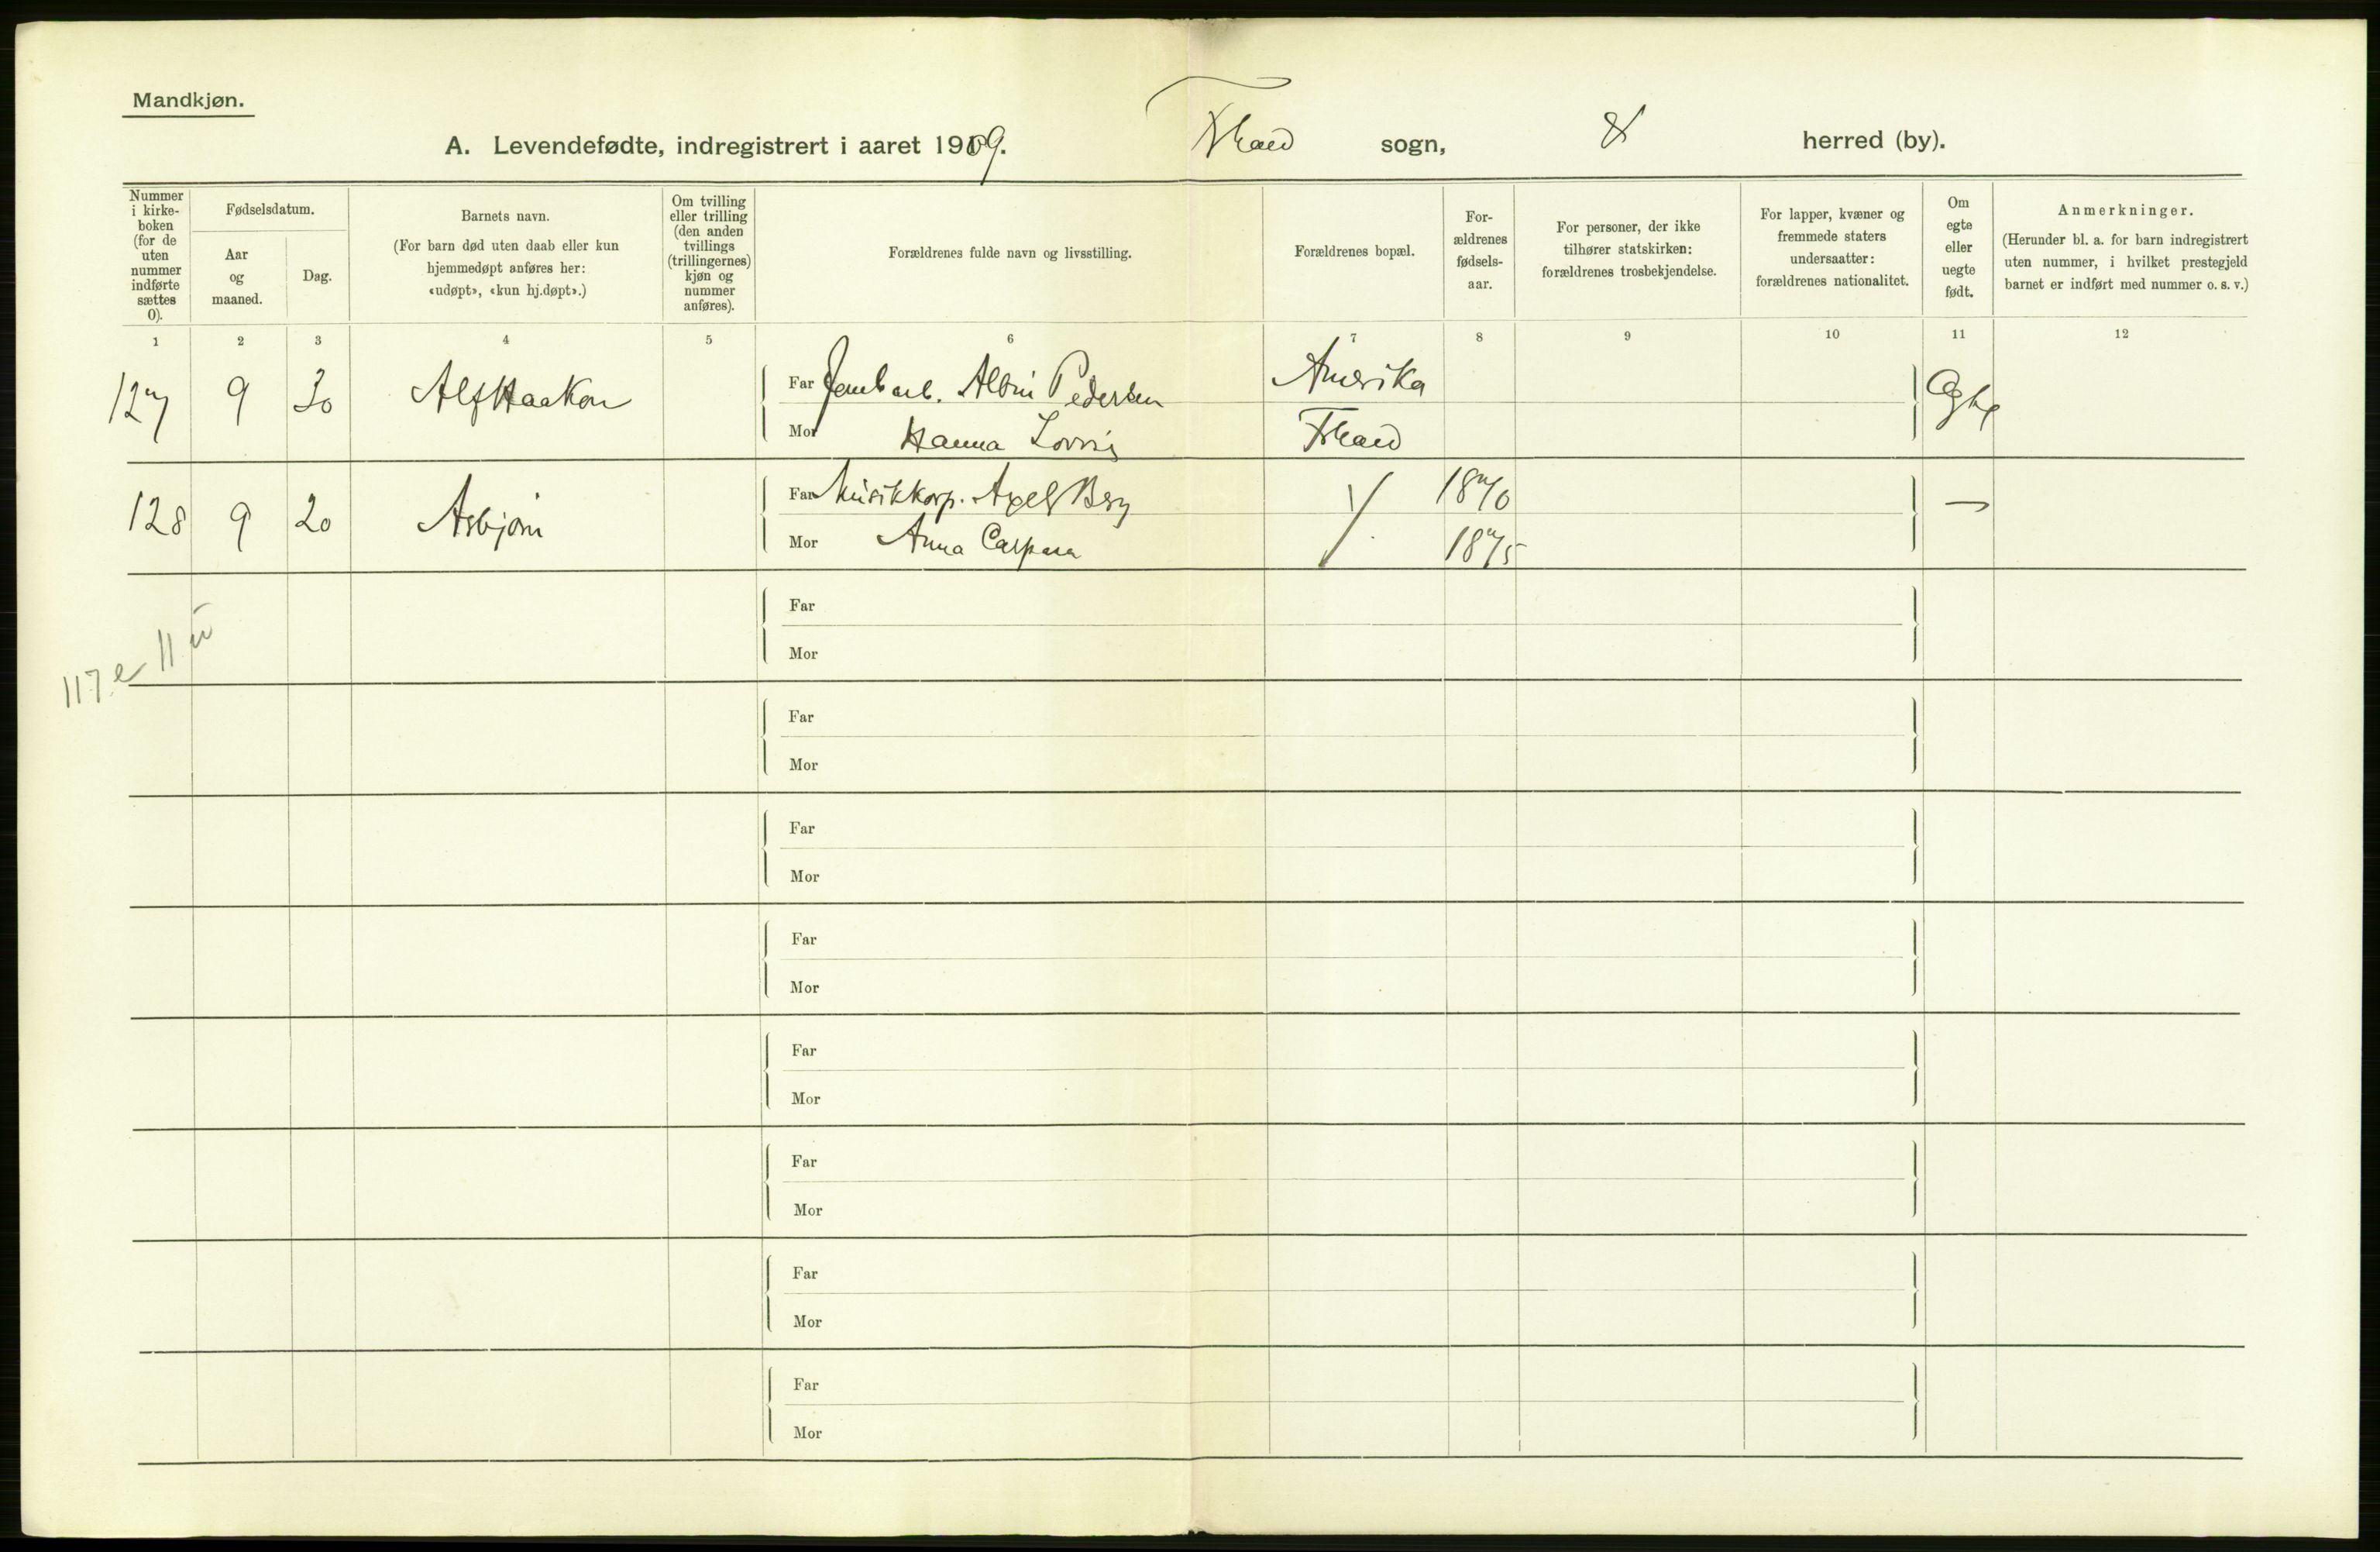 Mandkjøn.
A. Levendefødte, indregistrert i aaret 1909. Fhald sogn, herred (by).
Nummer i kirke-boken (for de uten nummer indførte sættes 0).
Fødselsdatum.
Aar og maaned.
Dag.
Barnets navn.
(For barn død uten daab eller kun hjemmedøpt anføres her: «udøpt», «kun hj.døpt».)
Om tvilling eller trilling (den anden tvillings (trillingernes) kjøn og nummer anføres).
Forældrenes fulde navn og livsstilling.
Forældrenes bopæl.
For-ældrenes fødsels-aar.
For personer, der ikke tilhører statskirken: forældrenes trosbekjendelse.
For lapper, kvæner og fremmede staters undersaatter: forældrenes nationalitet.
Om egte eller uegte født.
Anmerkninger.
(Herunder bl. a. for barn indregistrert uten nummer, i hvilket prestegjeld barnet er indført med nummer o. s. v.)
1 2 3 4 5 6 7 8 9 10 11 12
127 9 30 Alf Haakon Far Jernbarb. Albin Pedersen Amerika Egte
Mor Hanna Fhald
128 9 20 Asbjørn Far Musikkorp. Axel Berg 1870 —
Mor Anna Caspara 1875
Far
Mor
117 e 11 u
Far
Mor
Far
Mor
Far
Mor
Far
Mor
Far
Mor
Far
Mor
Far
Mor